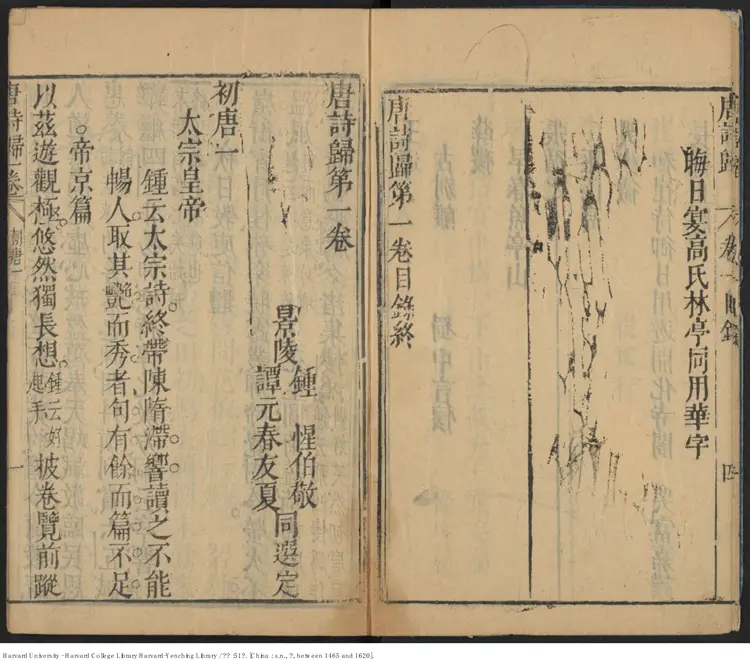 晦日宴高氏林亭同用華字
唐詩歸第一卷目錄終
唐詩歸第一卷
景陵 鍾 惺伯敬
譚元春友夏 同選定
初唐一
太宗皇帝
鍾云太宗詩終帶陳隋滯響讀之不能
暢人取其艷而秀者句有餘而篇不足
帝京篇
以茲遊觀極悠然獨長想鍾云好起手披卷覽前蹤
唐詩歸 卷一 初唐一 一
Harvard University - Harvard College Library Harvard-Yenching Library / ?? :51?. [China : s.n., ?, between 1465 and 1620].